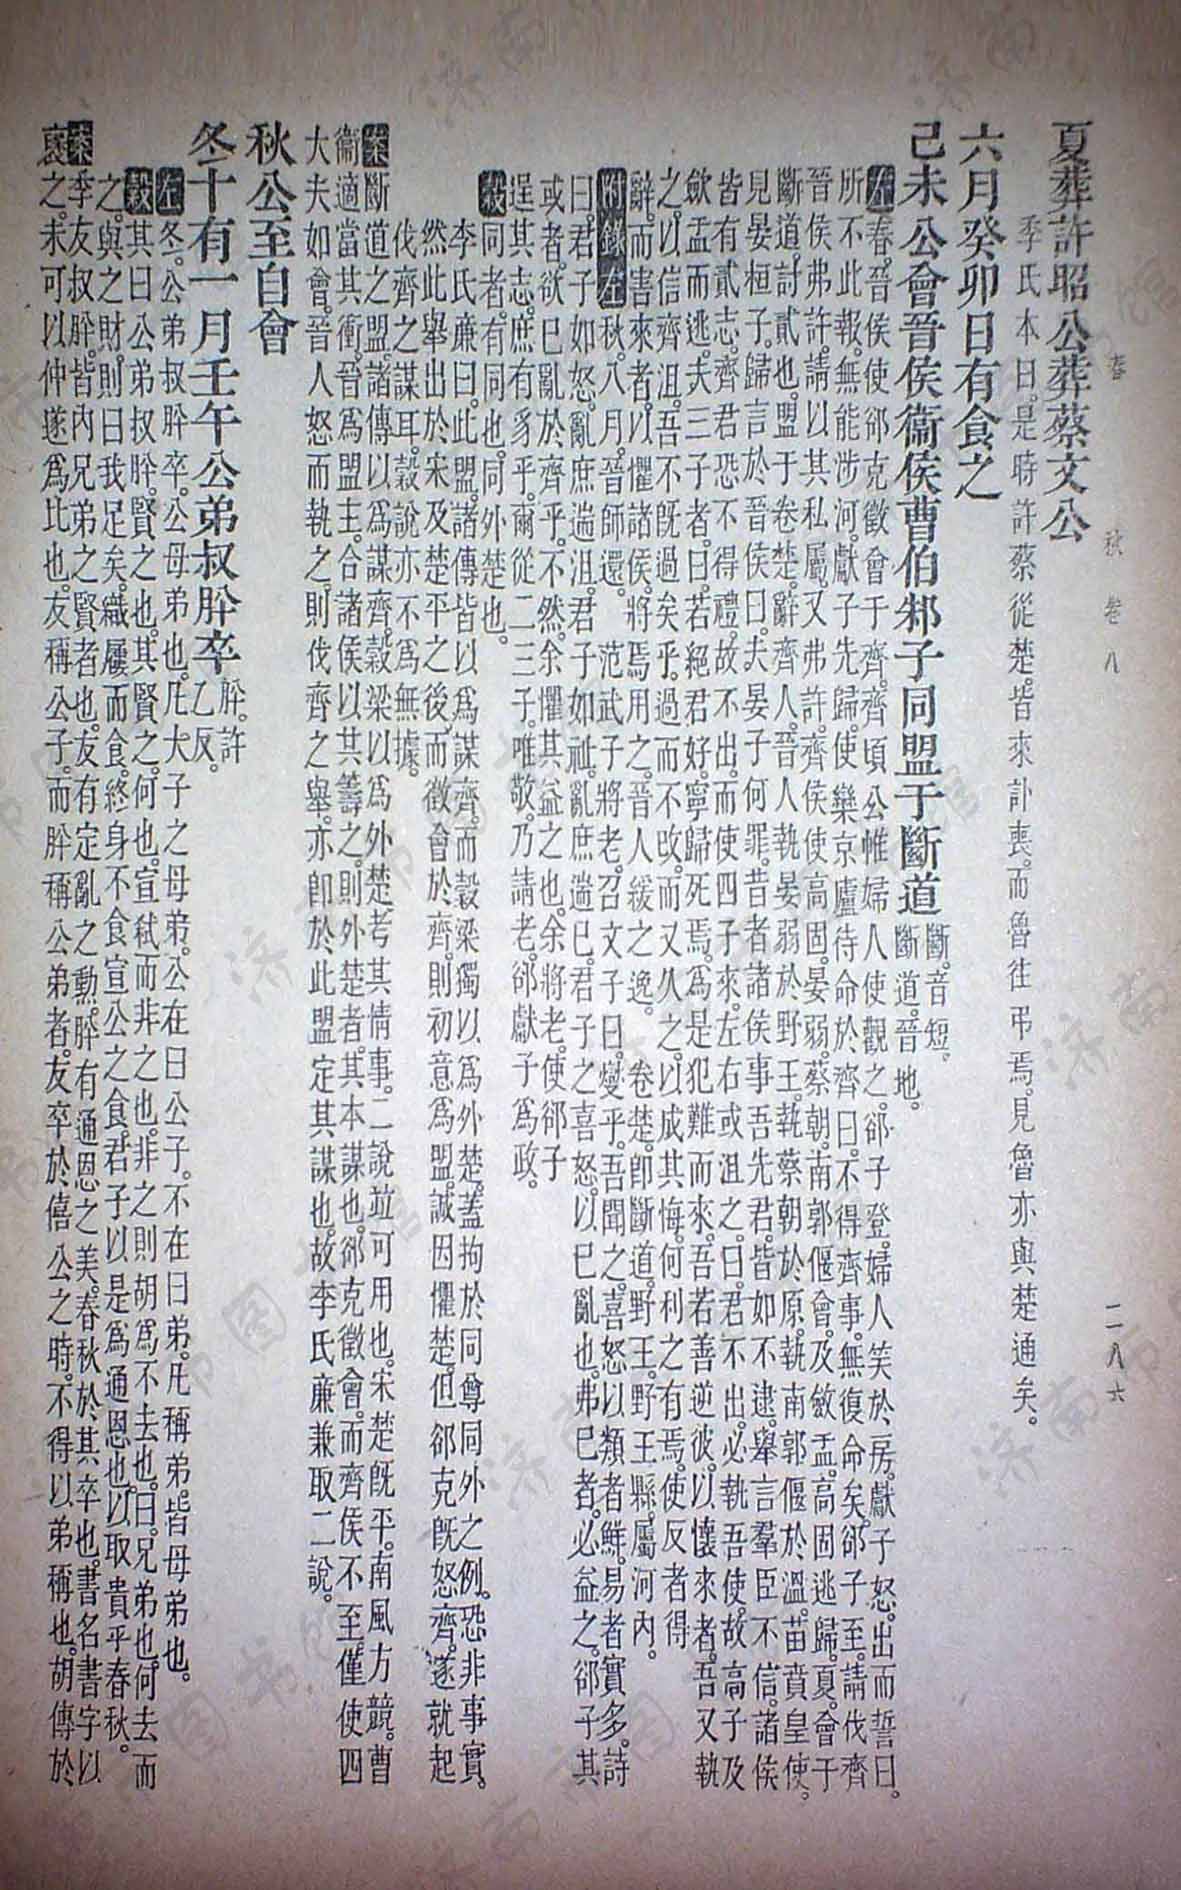 春 秋 卷八 二一八六
夏葬許昭公葬蔡文公
季氏本曰。是時許蔡從楚。皆來訃喪。而魯往弔焉。見魯亦與楚通矣。
六月癸卯日有食之
己未公會晉侯衞侯曹伯邾子同盟于斷道
斷。音短。
斷道。晉地。
左春。晉侯使郤克徵會于齊。齊頃公帷婦人使觀之。郤子登。婦人笑於房。獻子怒。出而誓曰。
所不此報。無能涉河。獻子先歸。使欒京廬待命於齊曰。不得齊事。無復命矣。郤子至。請伐齊
晉侯弗許。請以其私屬。又弗許。齊侯使高固。晏弱。蔡朝。南郭偃會。及斂盂。高固逃歸。夏。會于
斷道。討貳也。盟于卷楚。辭齊人。晉人執晏弱於野王。執蔡朝於原。執南郭偃於溫。苗賁皇使。
見晏桓子。歸言於晉侯曰。夫晏子何罪。昔者諸侯事吾先君。皆如不逮。舉言羣臣不信。諸侯
皆有貳志。齊君恐不得禮。故不出。而使四子來。左右或沮之。曰。君不出。必執吾使。故高子及
歛盂而逃。夫三子者。曰。若絕君好。寧歸死焉。爲是犯難而來。吾若善逆彼。以懷來者。吾又執
之。以信齊沮。吾不既過矣乎。過而不改。而又久之。以成其悔。何利之有焉。使反者得
辭。而害來者。以懼諸侯。將焉用之。晉人緩之。逸。卷楚。卽斷道。野王。野王縣。屬河內。
附錄左秋。八月。晉師還。 范武子將老。召文子曰。燮乎。吾聞之。喜怒以類者鮮。易者實多。詩
曰。君子如怒。亂庶遄沮。君子如祉。亂庶遄已。君子之喜怒。以已亂也。弗已者。必益之。郤子其
或者欲已亂於齊乎。不然。余懼其益之也。余將老。使郤子
逞其志。庶有豸乎。爾從二三子。唯敬。乃請老。郤獻子爲政。
穀同者。有同也。同外楚也。
李氏廉曰。此盟。諸傳皆以爲謀齊。而穀梁獨以爲外楚。蓋拘於同尊同外之例。恐非事實。
然此舉出於宋及楚平之後。而徵會於齊。則初意爲盟。誠因懼楚。但郤克既怒齊。遂就起
伐齊之謀耳。穀說亦不爲無據。
案斷道之盟。諸傳以爲謀齊。穀梁以爲外楚。考其情事。二說竝可用也。宋楚既平。南風方競。曹
衞適當其衝。晉爲盟主。合諸侯以其籌之。則外楚者。其本謀也。郤克徵會。而齊侯不至。僅使四
大夫如會。晉人怒而執之。則伐齊之舉。亦卽於此盟定其謀也。故李氏廉兼取二說。
秋公至自會
冬十有一月壬午公弟叔肸卒
肸。許
乙反。
左冬。公弟叔肸卒。公母弟也。凡大子之母弟。公在曰公子。不在曰弟。凡稱弟。皆母弟也。
穀其曰公弟叔肸。賢之也。其賢之。何也。宣弑而非之也。非之則胡爲不去也。曰。兄弟也。何去而
之。與之財。則曰我足矣。織屨而食。終身不食宣公之食。君子以是爲通恩也。以取貴乎春秋。
案季友叔肸。皆內兄弟之賢者也。友有定亂之勳。肸有通恩之美。春秋於其卒也。書名書字以
襃之。未可以仲遂爲比也。友稱公子。而肸稱公弟者。友卒於僖公之時。不得以弟稱也。胡傳於